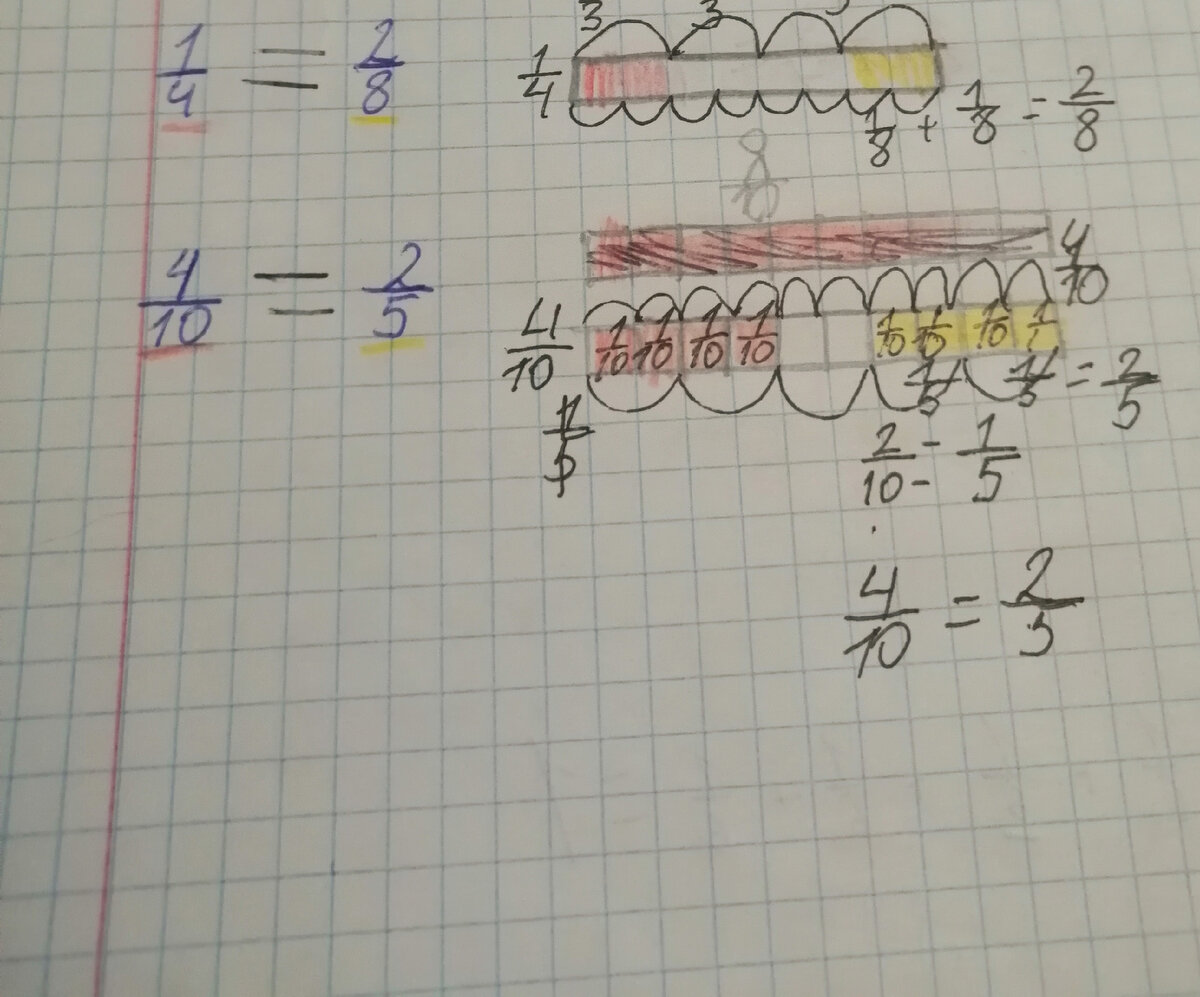 3 3
1/4 = 2/8
1/4
1/8 + 1/8 = 2/8
8/10
4/10
4/10 = 2/5
4/10 1/10 1/10 1/10 1/10 1/10 1/10 1/10
1/5 1/5 = 2/5
2/10 = 1/5
4/10 = 2/5